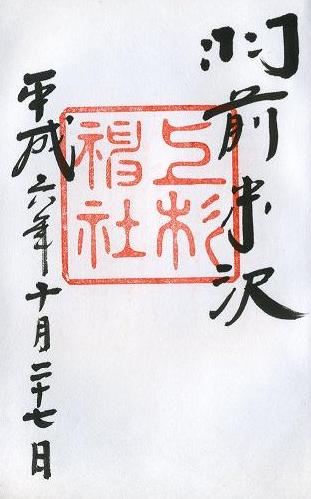 羽前米沢
上杉
神社
平成六年十月二十七日